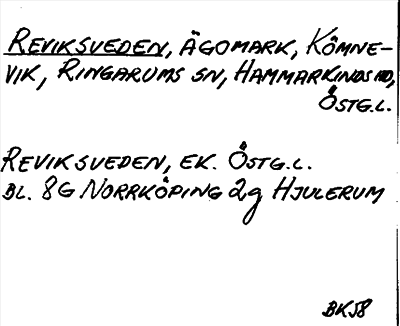 REVIKSVEDEN, ÄGOMARK, KÖMNE-
VIK, RINGARUMS SN, HAMMARKINDS HD,
ÖSTG.L.
REVIKSVEDEN, EK. ÖSTG.L.
BL. 8G NORRKÖPING 2g HJULERUM
BK58